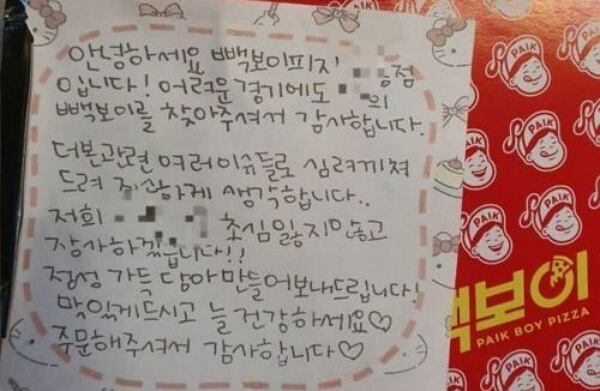 안녕하세요 빽보이피자
점
입니다! 어려운 경기에도 의
빽보이를 찾아주셔서 감사합니다.
더본관련 여러이슈들로 심려끼쳐
드려 죄송하게 생각합니다..
저희 초심잃지않고
장사하겠습니다!!
정성 가득 담아 만들어보내드립니다!
맛있게드시고 늘 건강하세요♡
주문해주셔서 감사합니다♡
PAIK
PAIK
PAIK
PAIK
PAIK
PAIK
백보이
PAIK BOY PIZZA